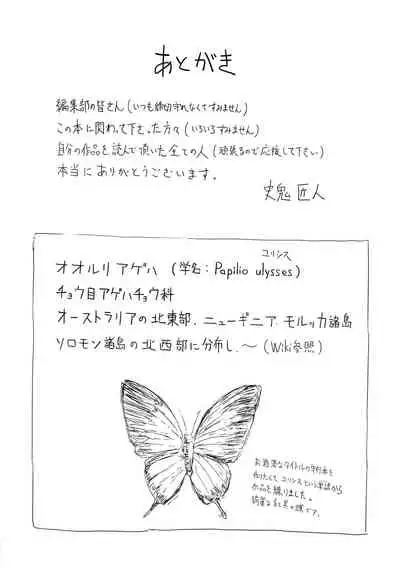 あとがき
編集部の皆さん(いつも締切守れなくてすみません)
この本に関わって下さった方々(いろいろすみません)
自分の作品を読んで頂いた全ての人(頑張るので応援して下さい)
本当にありがとうございます。
史鬼匠人
ユリシス
オオルリアゲハ (学名:Papilio ulysses)
チョウ目アゲハチョウ科
オーストラリアの北東部、ニューギニア、モルッカ諸島
ソロモン諸島の北西部に分布し、~(Wiki参照)
お洒落なタイトルの単行本を
作りたくて、ユリシスという単語から
作品を練りました。
綺麗な
の蝶です。